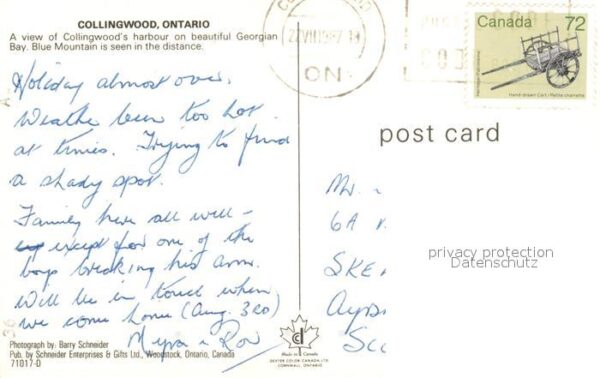 COLLINGWOOD, ONTARIO
A view of Collingwood's harbour on beautiful Georgian
Bay. Blue Mountain is seen in the distance.
Holiday almost over.
Weathe been too hot
at times. Trying to find
a shady spot.
Family here all well -
except for one of the
boys breaking his arm.
Will be in touch when
we come home (Aug. 3rd)
Myra & Ron
Photograph by: Barry Schneider
Pub. by Schneider Enterprises & Gifts Ltd., Woodstock, Ontario, Canada
71017-D
Made in Canada
DEXTER COLOR CANADA LTD.
CORNWALL, ONTARIO
ON
Canada 72
Hand-drawn Cart / Petite charrette
post card
Mr.
6A
SKE
Ayrs
Sc
privacy protection
Datenschutz